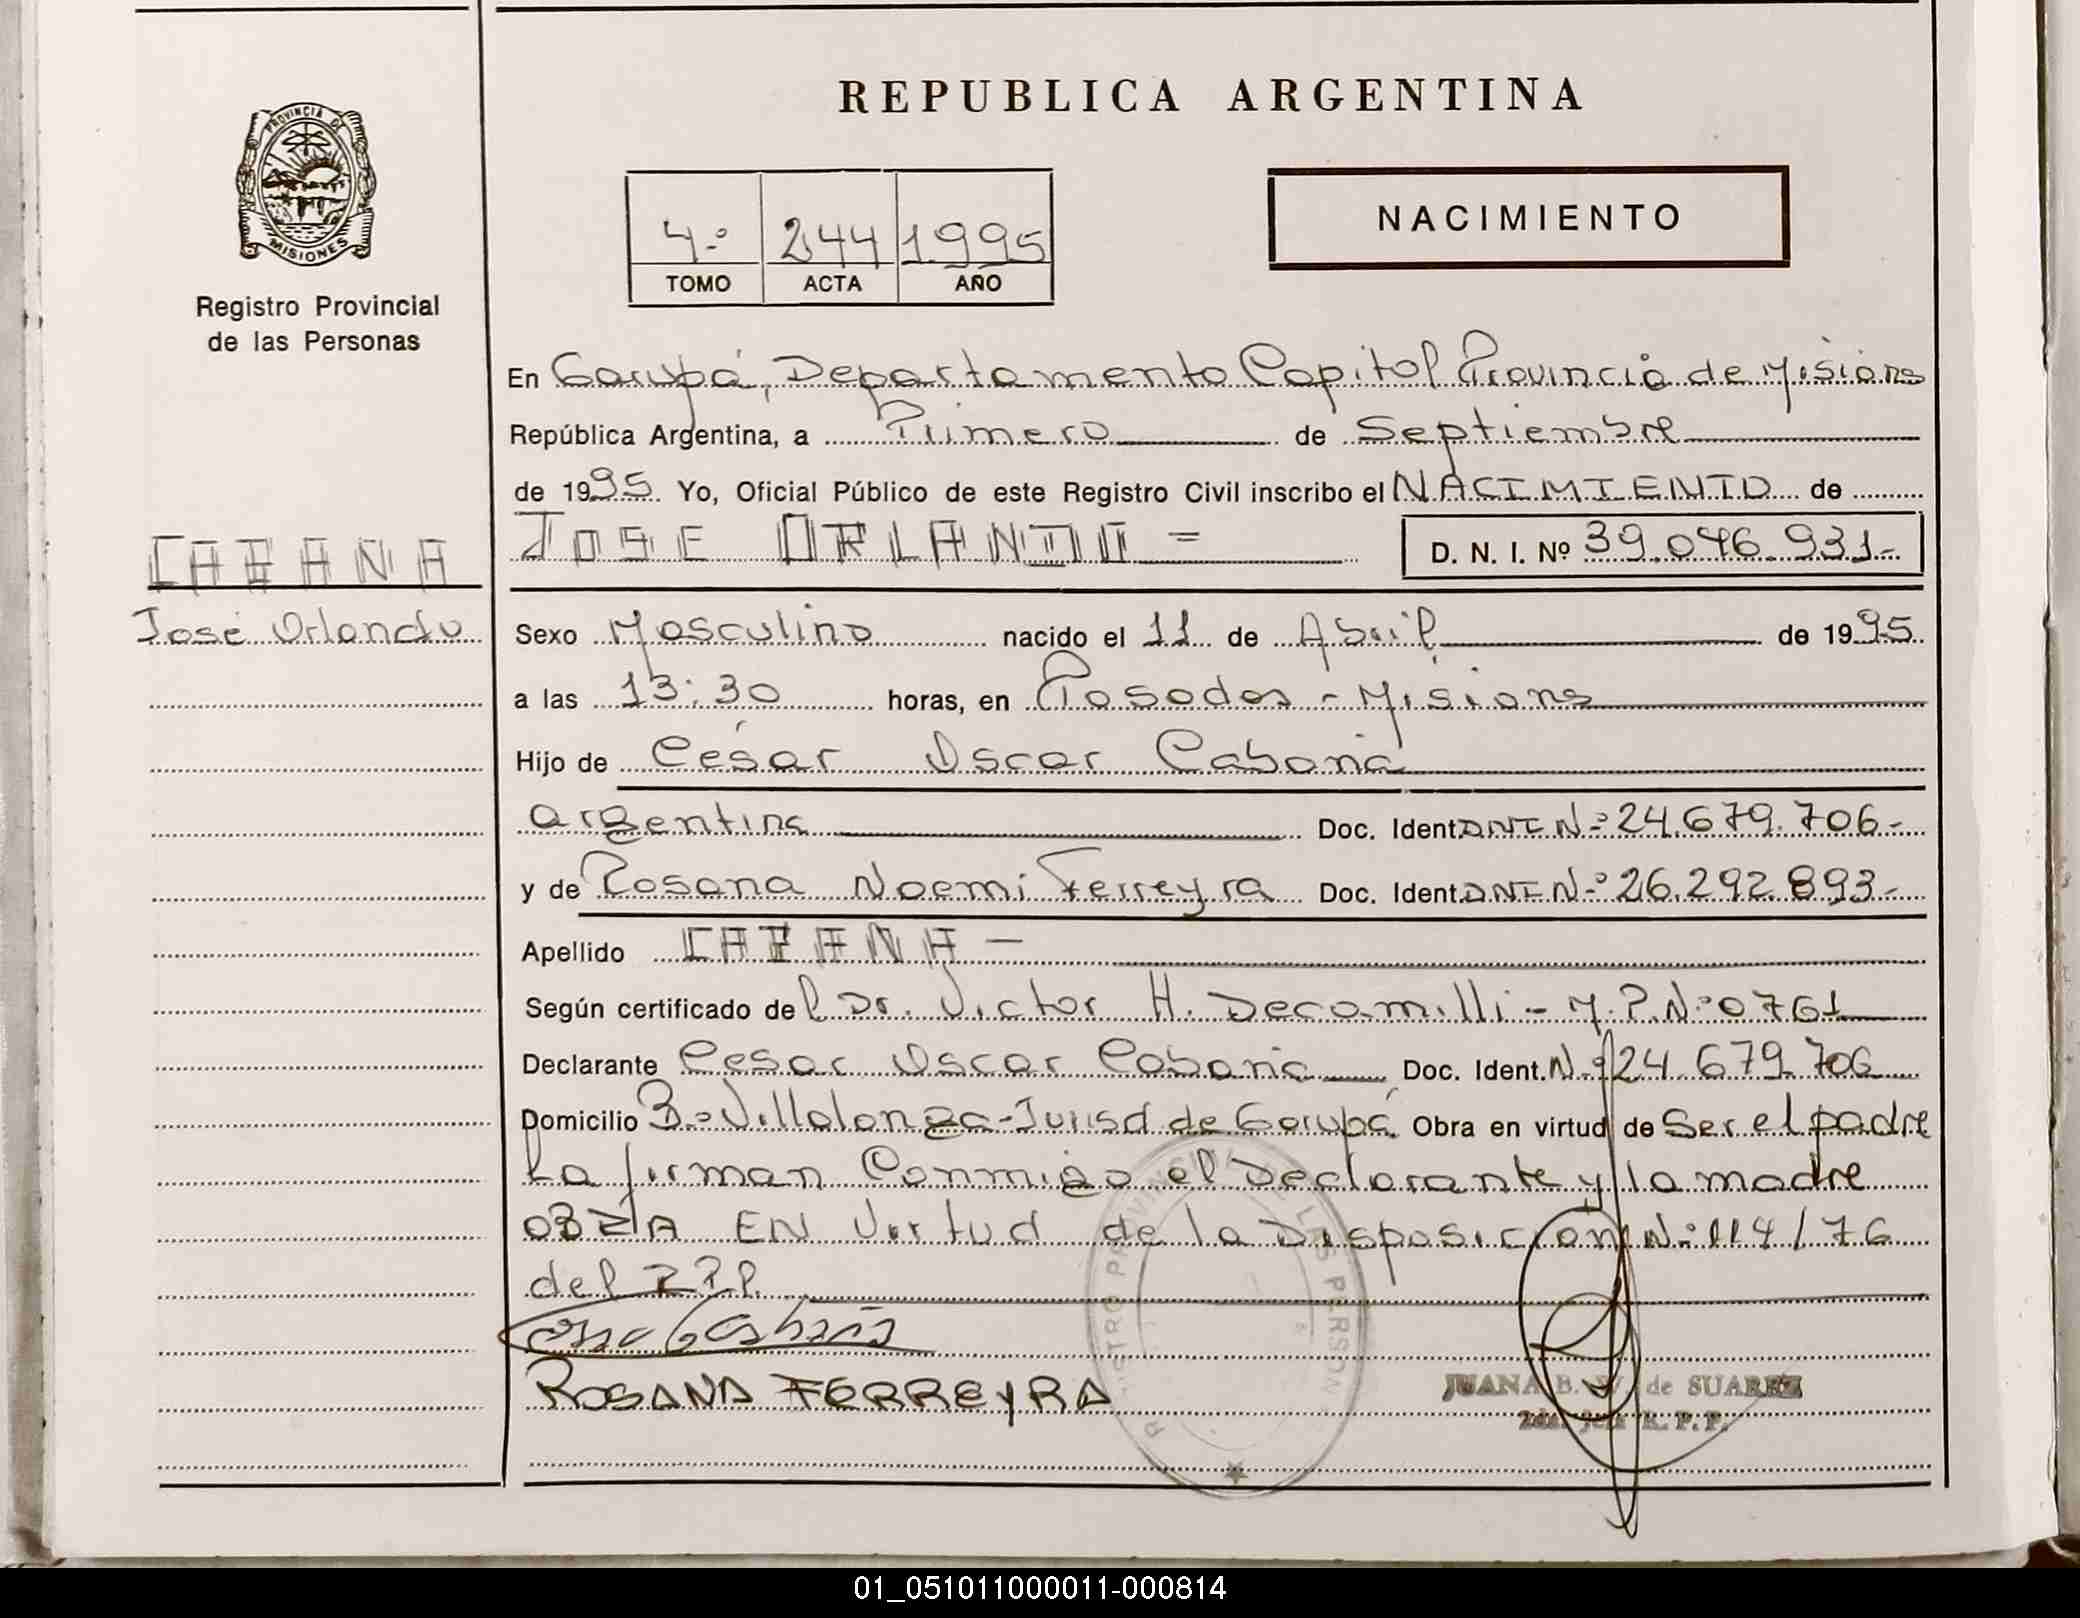 PROVINCIA DE
MISIONES
Registro Provincial
de las Personas
CABANA
José Orlando
REPUBLICA ARGENTINA
4º 244 1995
TOMO ACTA AÑO
NACIMIENTO
En Garupá, Departamento Capital Provincia de Misiones
República Argentina, a Primero de Septiembre
de 1995 Yo, Oficial Público de este Registro Civil inscribo el NACIMIENTO de
JOSE ORLANDO = D. N. I. Nº 39.046.931-
Sexo Masculino nacido el 11 de Abril de 1995
a las 13:30 horas, en Posadas - Misiones
Hijo de César Oscar Cabaña
argentina Doc. Ident. DNI Nº 24.679.706-
y de Rosana Noemi Ferreyra Doc. Ident. DNI Nº 26.292.893-
Apellido CABANA -
Según certificado del Dr. Victor H. Decamilli - M.P.Nº 0761
Declarante Cesar Oscar Cabaña Doc. Ident. Nº 24.679.706
Domicilio Bº Villalonga - Jurisd de Garupá Obra en virtud de Ser el padre
La firman Conmigo el Declarante y la madre
OBRA EN Virtud de la Disposicion Nº 114/76
del R.P.P.
Cabaña
ROSANA FERREYRA
JUANA B. W. de SUAREZ
2da. Jefe R. P. P.
01_051011000011-000814